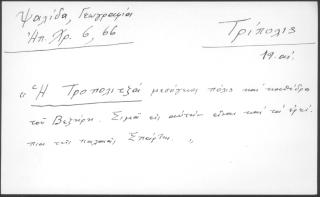 Ψαλίδα, Γεωγραφία
Ἠπ. Χρ. 6, 66
Τρίπολις
19. αἰ.
"Ἡ Τροπολιτζά μεσόγειος πόλις καί καθέδρα
τοῦ Βεζύρη. Σιμά εἰς αὐτήν εἶναι καί τά ἐρεί-
πια τῆς παλαιᾶς Σπάρτης. "